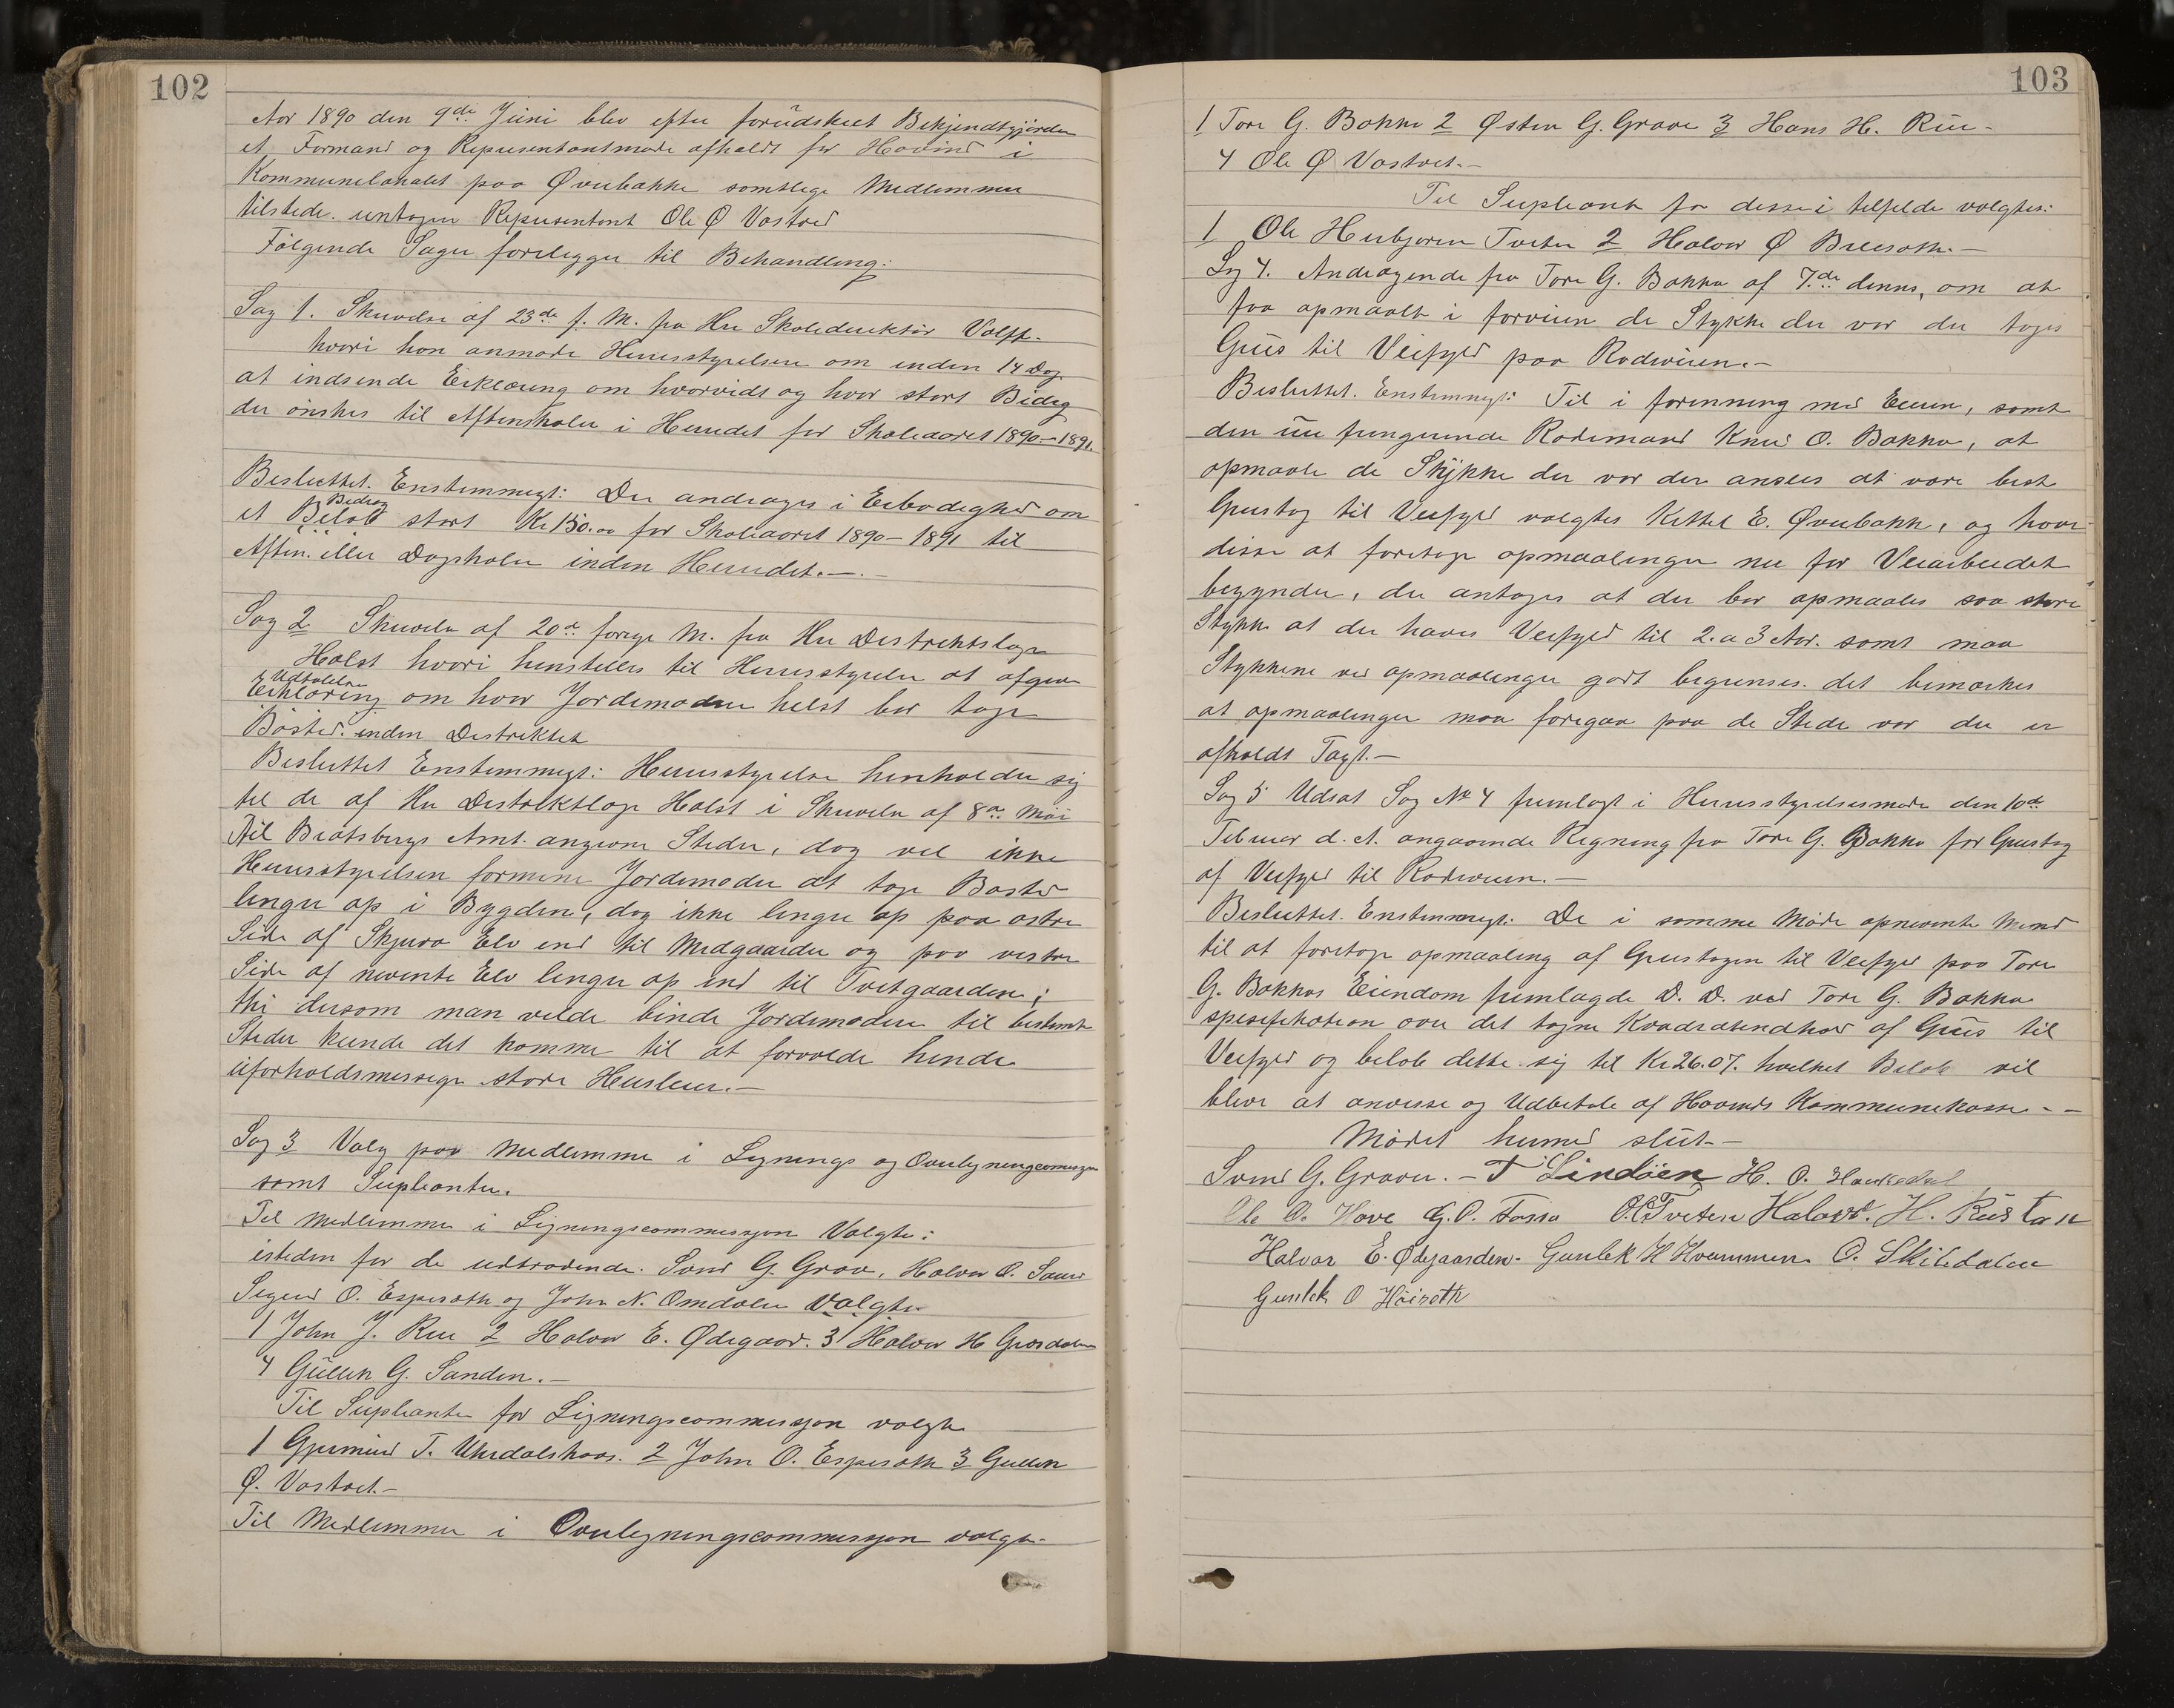 102
Aar 1890 den 9de Juni blev efter forudskeet Bekjendtgjörelse
et Formand og Repræsentantmøde afholdt for Hovind i
Kommunelokalet paa Øverbakke samtlige Medlemmer
tilstede. untagen Repræsentant Ole Ø Vastved
Følgende Sager foreligger til Behandling:
Sag 1. Skrivelse af 23de f. M. fra Hrr Skoledirektör
hvori han anmoder Herredsstyrelsen om inden 14 Dage
at indsende Erklæring om hvorvidt og hvor stort Bidrag
der ønskes til Aftenskoler i Herredet for Skoleaaret 1890-1891.
Besluttet. Enstemmigt: Der andrages i Erbødighed om
Bidrag
et Beløb stort Kr 150.00 for Skoleaaret 1890-1891 til
Aften. eller Dagskoler inden Herredet.-.-
Sag 2 Skrivelse af 20de forrige M. fra Hrr Distriktslæge
Holst hvori henstilles til Herredsstyrelsen at afgive
Udtalelse
Erklæring om hvor Jordemoderen helst bør tage
Bosted. inden Distriktet
Besluttet Enstemmigt: Herredsstyrelsen henholder sig
til de af Hrr Distriktslæge Holst i Skrivelse af 8de Mai
til Bratsbergs Amt. angivne Steder, dog vil ikke
Herredsstyrelsen formene Jordemoder at tage Bosted
lengre op i Bygden, dog ikke lengre op paa østre
Side af Skjerva Elv end til Midgaarden og paa vestre
Side af nevnte Elv lengre op end til Tveitgaarden;
thi dersom man vilde binde Jordemoderen til bestemte
Steder kunde det komme til at forvolde hende
uforholdsmessige store Husleier.-
Sag 3 Valg paa Medlemmer i Lignings og Overligningscomissjon
samt Suplianter.
Til Medlemmer i Ligningscommissjon Valgte:
isteden for de udtrædende. Svend G. Grave, Halvor O. Sand
Sigurd O. Esperoth og John N. Omdalen Valgte
1 John J. Rue 2 Halvor E. Ødegaard. 3 Halvor H Grosdalen
4 Gullek G. Sanden.-
Til Suplianter for Ligningscommissjon valgte
1 Gjermund T. Uhrdalskaas. 2 John O. Esperoth 3 Gullek
Ø. Vastvet.-
Til Medlemmer i Overligningscommissjon valgte-
103
1 Tore G. Bakka 2 Østen G. Grave 3 Hans H. Rue-
4 Ole Ø Vastvet.-
Til Supleant for desse i telfelde valgtes:
1 Ole Herbjørnsen Tveten 2 Halvor Ø
Sag 4. Andragende fra Tore G. Bakka af 7de dennes, om at
faa opmaalt i forveien de Stykker der var der toges
Grus til Veifyld paa Rodeveien.-
Besluttet. Enstemmigt: Til i forenning med Eieren, samt
den nu fungerende Rodemand Knud O. Bakka, at
opmaale de Stykker der var der ansees at være best
Grustag til Veifyld valgtes Kittel E. Øverbakk, og haver
disse at foretage opmaalinger nu før Veiarbeidet
begynder, der antages at der bør opmaales saa store
Stykker at der haves Veifyld til 2. a 3 Aar. samt maa
Stykkene ved opmaalinger godt begrenses. det bemerkes
at opmaalinger maa foregaa paa de Steder var der er
afholdt Taxt.-
Sag 5 Udsat Sag No 4 fremlagt i Herredsstyrelsesmøde den 10de
Februar d. A. angaaende Regning fra Tore G. Bakka for Grustag
af Veifyld til Rodeveien.-
Besluttet. Enstemmigt. De i samme Møde opnevnte Mend
til at foretage opmaaling af Grustagen til Veifyld paa Tore
G. Bakkas Eiendom fremlagde D. D. ved Tore G. Bakka
spesefikation over det tagne Kvadratindhold af Grus til
Veifyld og beløb dette sig til Kr 26.07. hvilket Beløb vil
blive at anvisse og Udbetale af Hovinds Kommunekasse--
Mødet hermed slut-
Svend G. Graver.- T Lindöen H. O. Haukedal
Ole O. Hove G.O. Fosso O.O.Tveten Halovr. H. Rustan
Halvor E. Ødegaarden- Gunlek H Hvammen O. Skibdalen
Gunlek O Höiseth